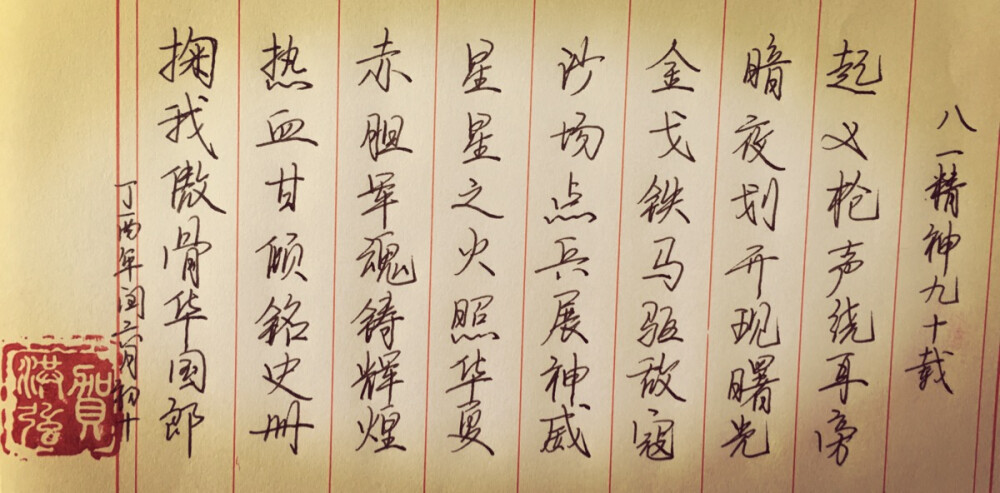 八一精神九十载
起义枪声绕耳旁
暗夜划开现曙光
金戈铁马驱敌寇
沙场点兵展神威
星星之火照华夏
赤胆军魂铸辉煌
热血甘倾铭史册
掬我傲骨华国郎
丁酉年闰六月初十
贺洪强